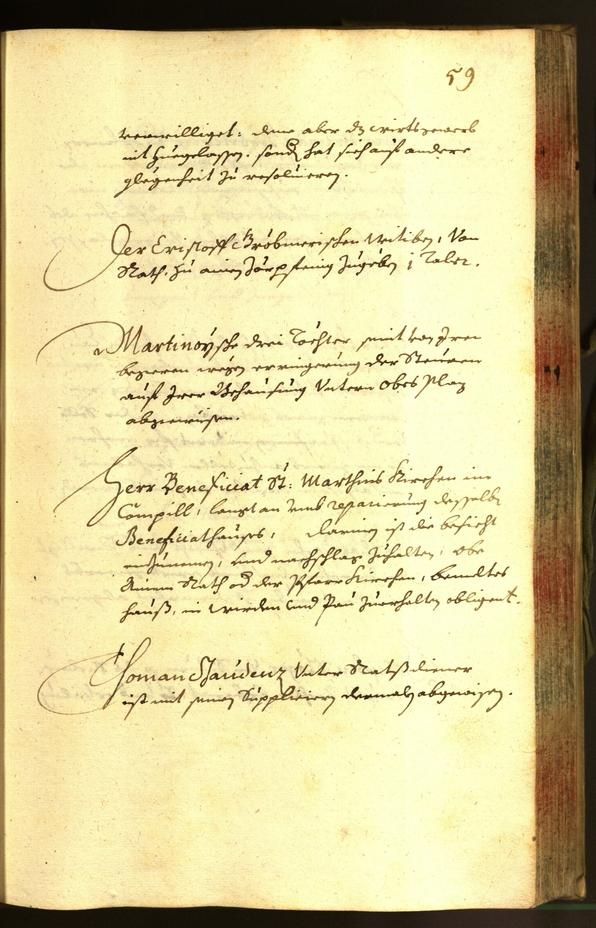 59
verwilliget: deme aber dz wirtsgewerb
nit zuegelassen. sond hat sich auf andere
glegenheit zu resoluieren.
Der Cristoff Gröbmerischen witiben, von
Rath. zu ainem Zörpfenig zugeben 1 Taler.
Martinoysche drei Töchter seint von Iren
begeren wegen erringerung der Steuren
auf Irer Behausung Untern obes Plaz
abgewisen.
Herr Beneficiat St: Marthins Kirchen im
Campill, langt an umb reparierung desselbn
Beneficiathauses, darinn ist die besicht
einzunemen, und nachschlag zuhalten, obe
Ainem Rath od der Pfarrkirchen, bemeltes
hauß, in wirden und Pau zuerhalten obligent.
Toman Jaudenz Unter Ratßdiener
ist mit seinen Suppliciern dermaln abgewisen.